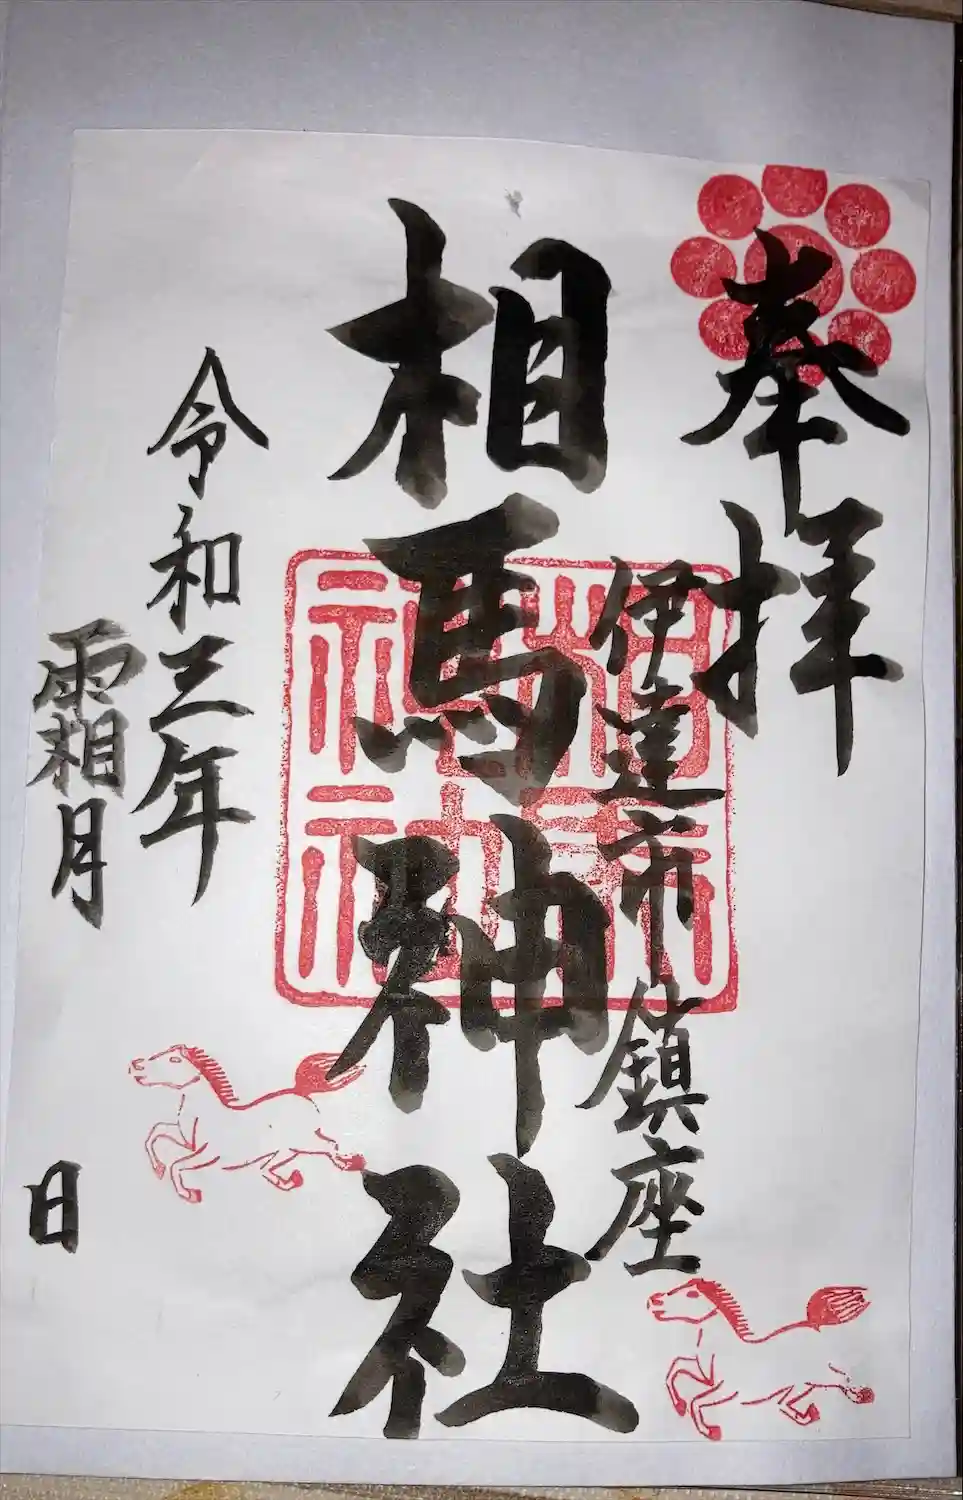 奉拝
伊達市鎮座
相馬神社
相馬神社
令和三年
霜月
日